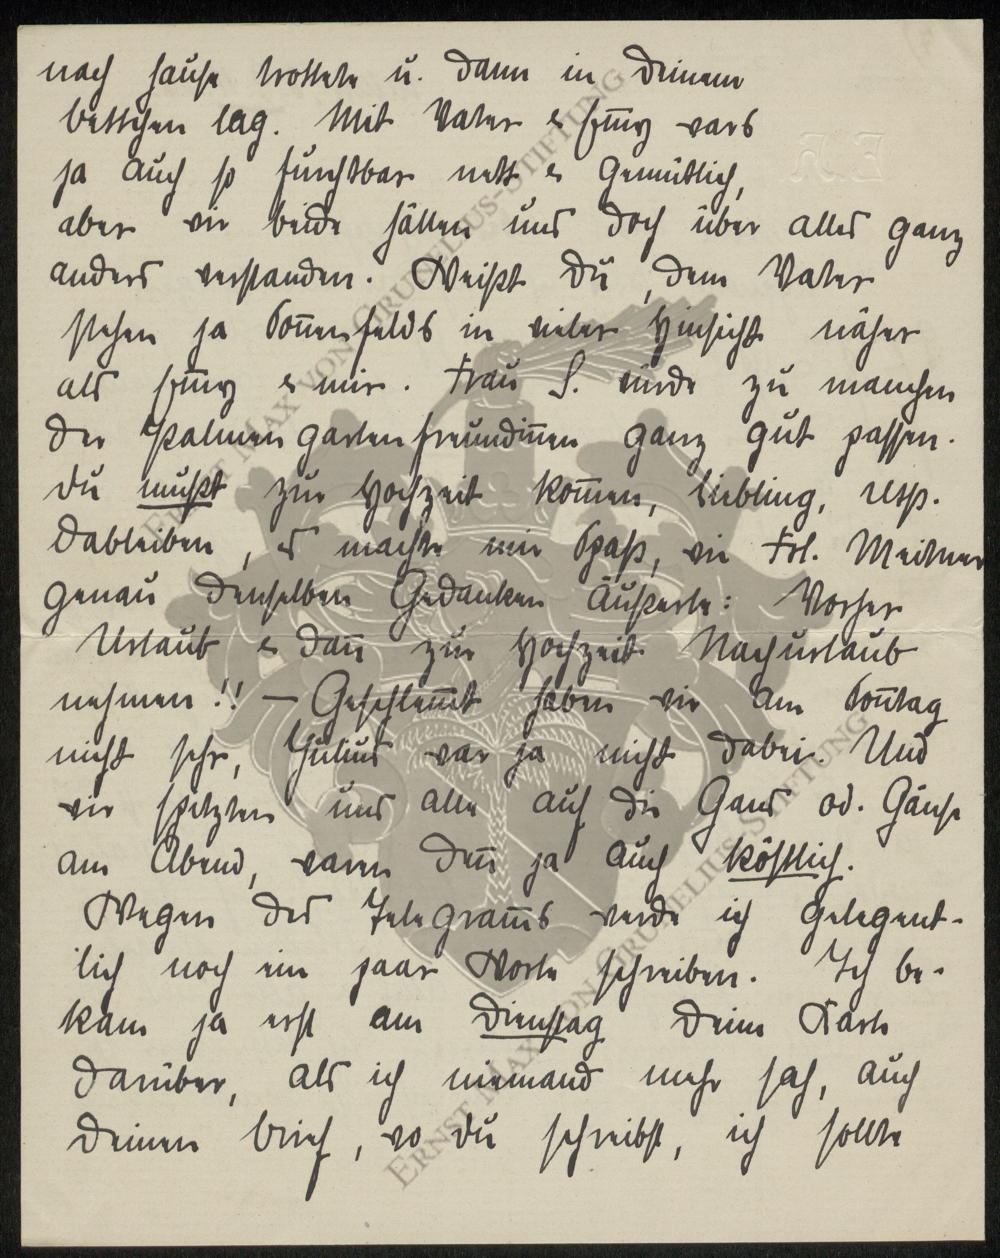 nach Hause trottete u. dann in Deinem
Bettchen lag. Mit Vater & wars
ja auch so furchtbar nett & gemütlich,
aber wir beide hätten uns doch über alles ganz
anders verstanden. Weißt Du, dem Vater
stehen ja Soñenfelds in vieler Hinsicht näher
als & mir. Frau S. würde zu manchen
der Palmengartenfreundiñen ganz gut passen.
Du mußt zur Hochzeit kom̄en, Liebling, resp.
dableiben, es machte mir Spaß, wie Frl. Meitner
genau denselben Gedanken äußerte: Vorher
Urlaub & dañ zur Hochzeit Nachurlaub
nehmen!! — Geschlem̄t haben wir am Soñtag
nicht sehr, Julius war ja nicht dabei. Und
wir spitzten uns alle auf die Gans od. Gänse
am Abend, waren deñ ja auch köstlich.
Wegen des Telegram̄s werde ich gelegent-
lich noch ein paar Worte schreiben. Ich be-
kam ja erst am Dienstag Deine Karte
darüber, als ich niemand mehr sah, auch
Deinen Brief, wo Du schreibst, ich sollte
ERNST MAX VON GRUNELIUS-STIFTUNG
ERNST MAX VON GRUNELIUS-STIFTUNG